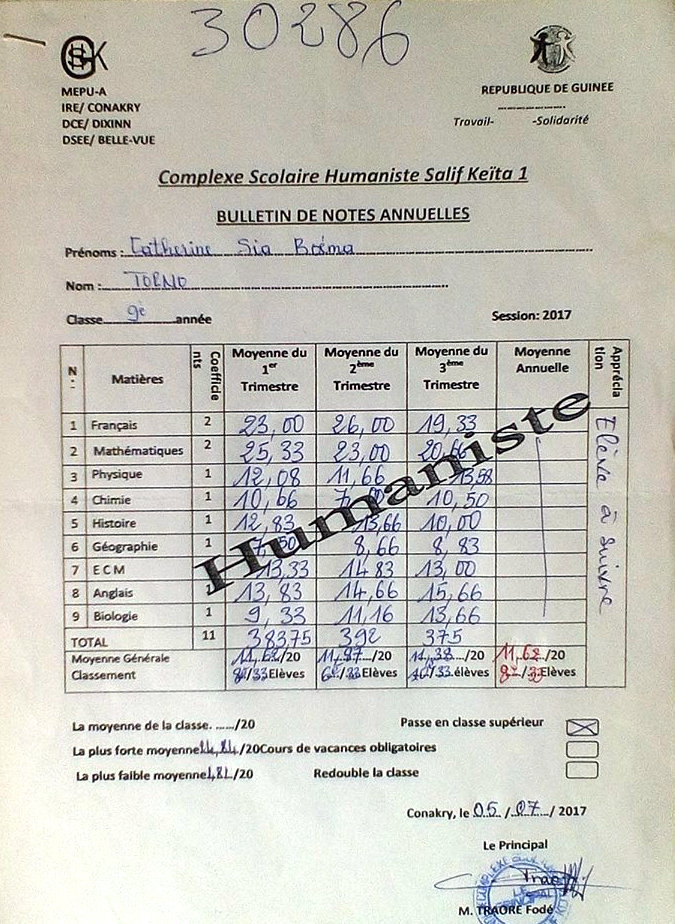 30286
MEPU-A
IRE/ CONAKRY
DCE/ DIXINN
DSEE/ BELLE-VUE
REPUBLIQUE DE GUINEE
Travail- -Solidarité
Complexe Scolaire Humaniste Salif Keïta 1
BULLETIN DE NOTES ANNUELLES
Prénoms : Catherine Sia
Nom : TORNO
Classe 9e année Session: 2017
N: Matières Coefficients Moyenne du 1er Trimestre Moyenne du 2ème Trimestre Moyenne du 3ème Trimestre Moyenne Annuelle Appréciation
1 Français 2 23,00 26,00 19,33
2 Mathématiques 2 25,33 23,00 20,66
3 Physique 1 12,08 11,66 13,58
4 Chimie 1 10,66 10,50
5 Histoire 1 12,83 13,66 10,00
6 Géographie 1 7,50 8,66 8,83
7 E C M 13,33 14,83 13,00
8 Anglais 1 13,83 14,66 15,66
9 Biologie 1 9,33 11,16 13,66
TOTAL 11 383,75 392 375
Moyenne Générale /20 /20 /20 11,62/20
Classement 8e/33 Elèves 6e/33 Elèves /33 élèves 8e/33 Elèves
Elève à suivre
Humaniste
La moyenne de la classe. ....../20 Passe en classe supérieur
La plus forte moyenne /20 Cours de vacances obligatoires
La plus faible moyenne /20 Redouble la classe
Conakry, le 05 / 07 / 2017
Le Principal
M. TRAORE Fodé